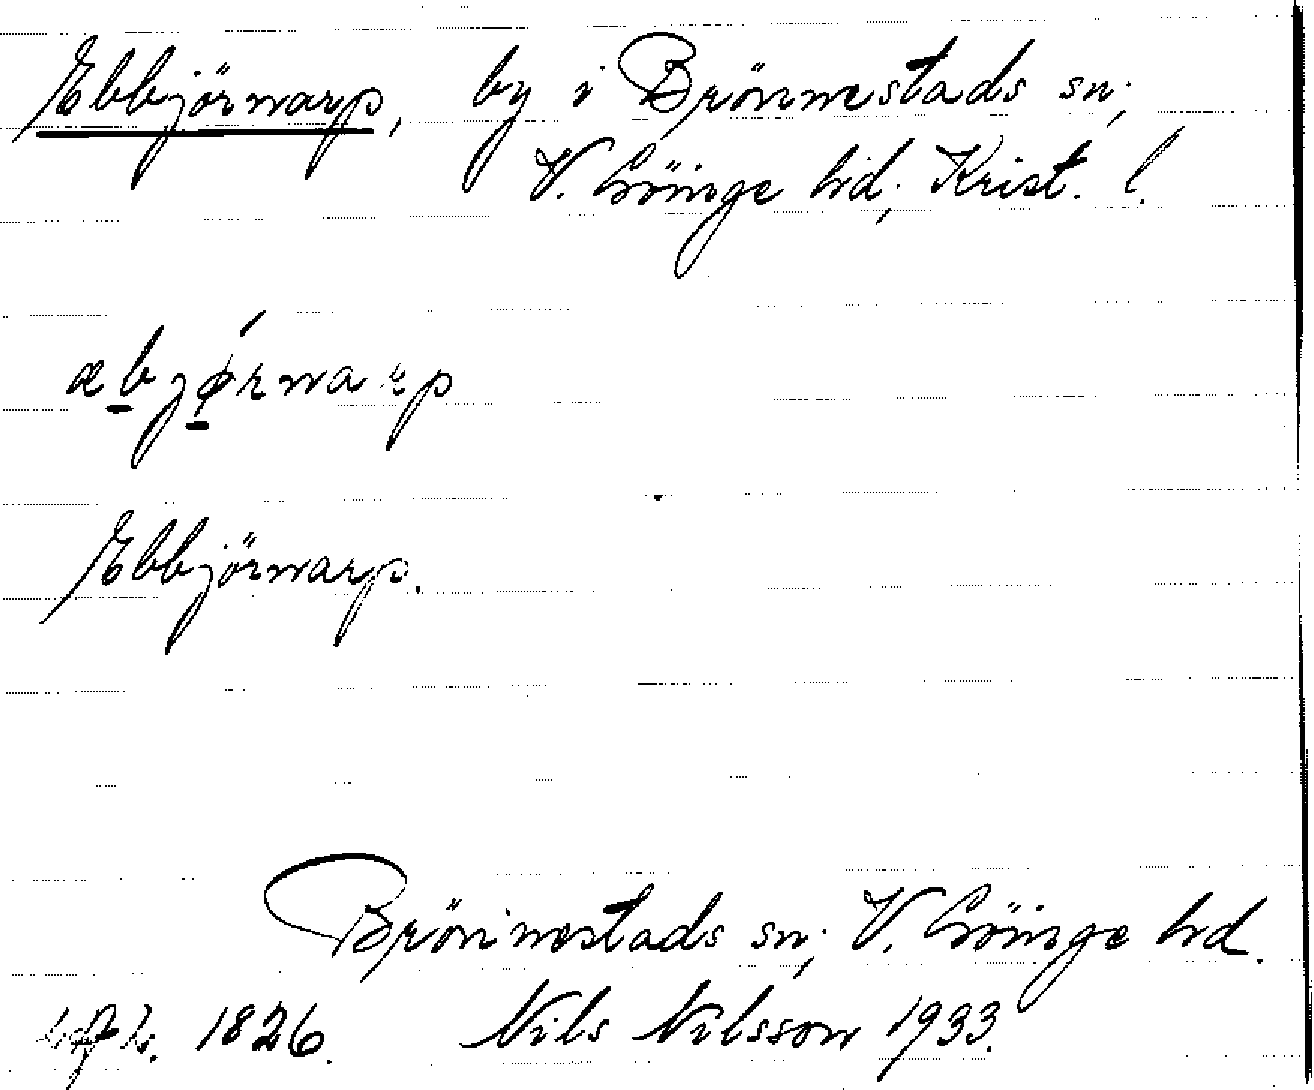 Ebbjörnarp, by i Brönnestads sn;
V. Göinge hd; Krist. l.
Ebbjörnarp.
Brönnestads sn; V. Göinge hd.
1826. Nils Nilsson 1933.